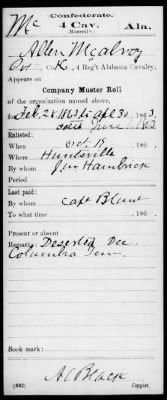 Mc Confederate.
4 Cav. Ala.
(Russell's.)
Allen Mcalroy
Co. K, 4 Reg't Alabama Cavalry.
Appears on
Company Muster Roll
of the organization named above,
for Feb. 28 1863 to Apl 30, 1863.
dated June 1, 1863
Enlisted:
When Oct. 18, 186 .
Where Huntsville
By whom Jno Hambrick
Period
Last paid:
By whom Capt Blunt
To what time , 186 .
Present or absent
Remarks: Deserted Dec.
Columbia Tenn.
Book mark:
(642) A C Black
Copyist.